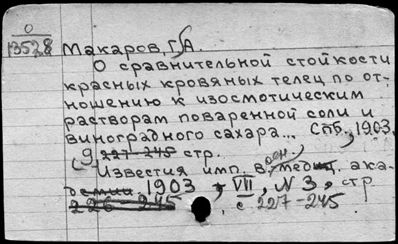 0
13528 Макаров, Г. А.
О сравнительной стойкости
красных кровяных телец по от-
ношению к изосмотическим
растворам поваренной соли и
виноградного сахара... Спб., 1903.
9 227-245 стр.
Известия имп. воен. медиц. ака-
демии. 1903, VII, N 3, стр
226-245. с. 227-245.